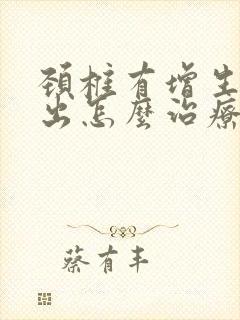 頸柱有增生
出怎麼治療
蔡有丰